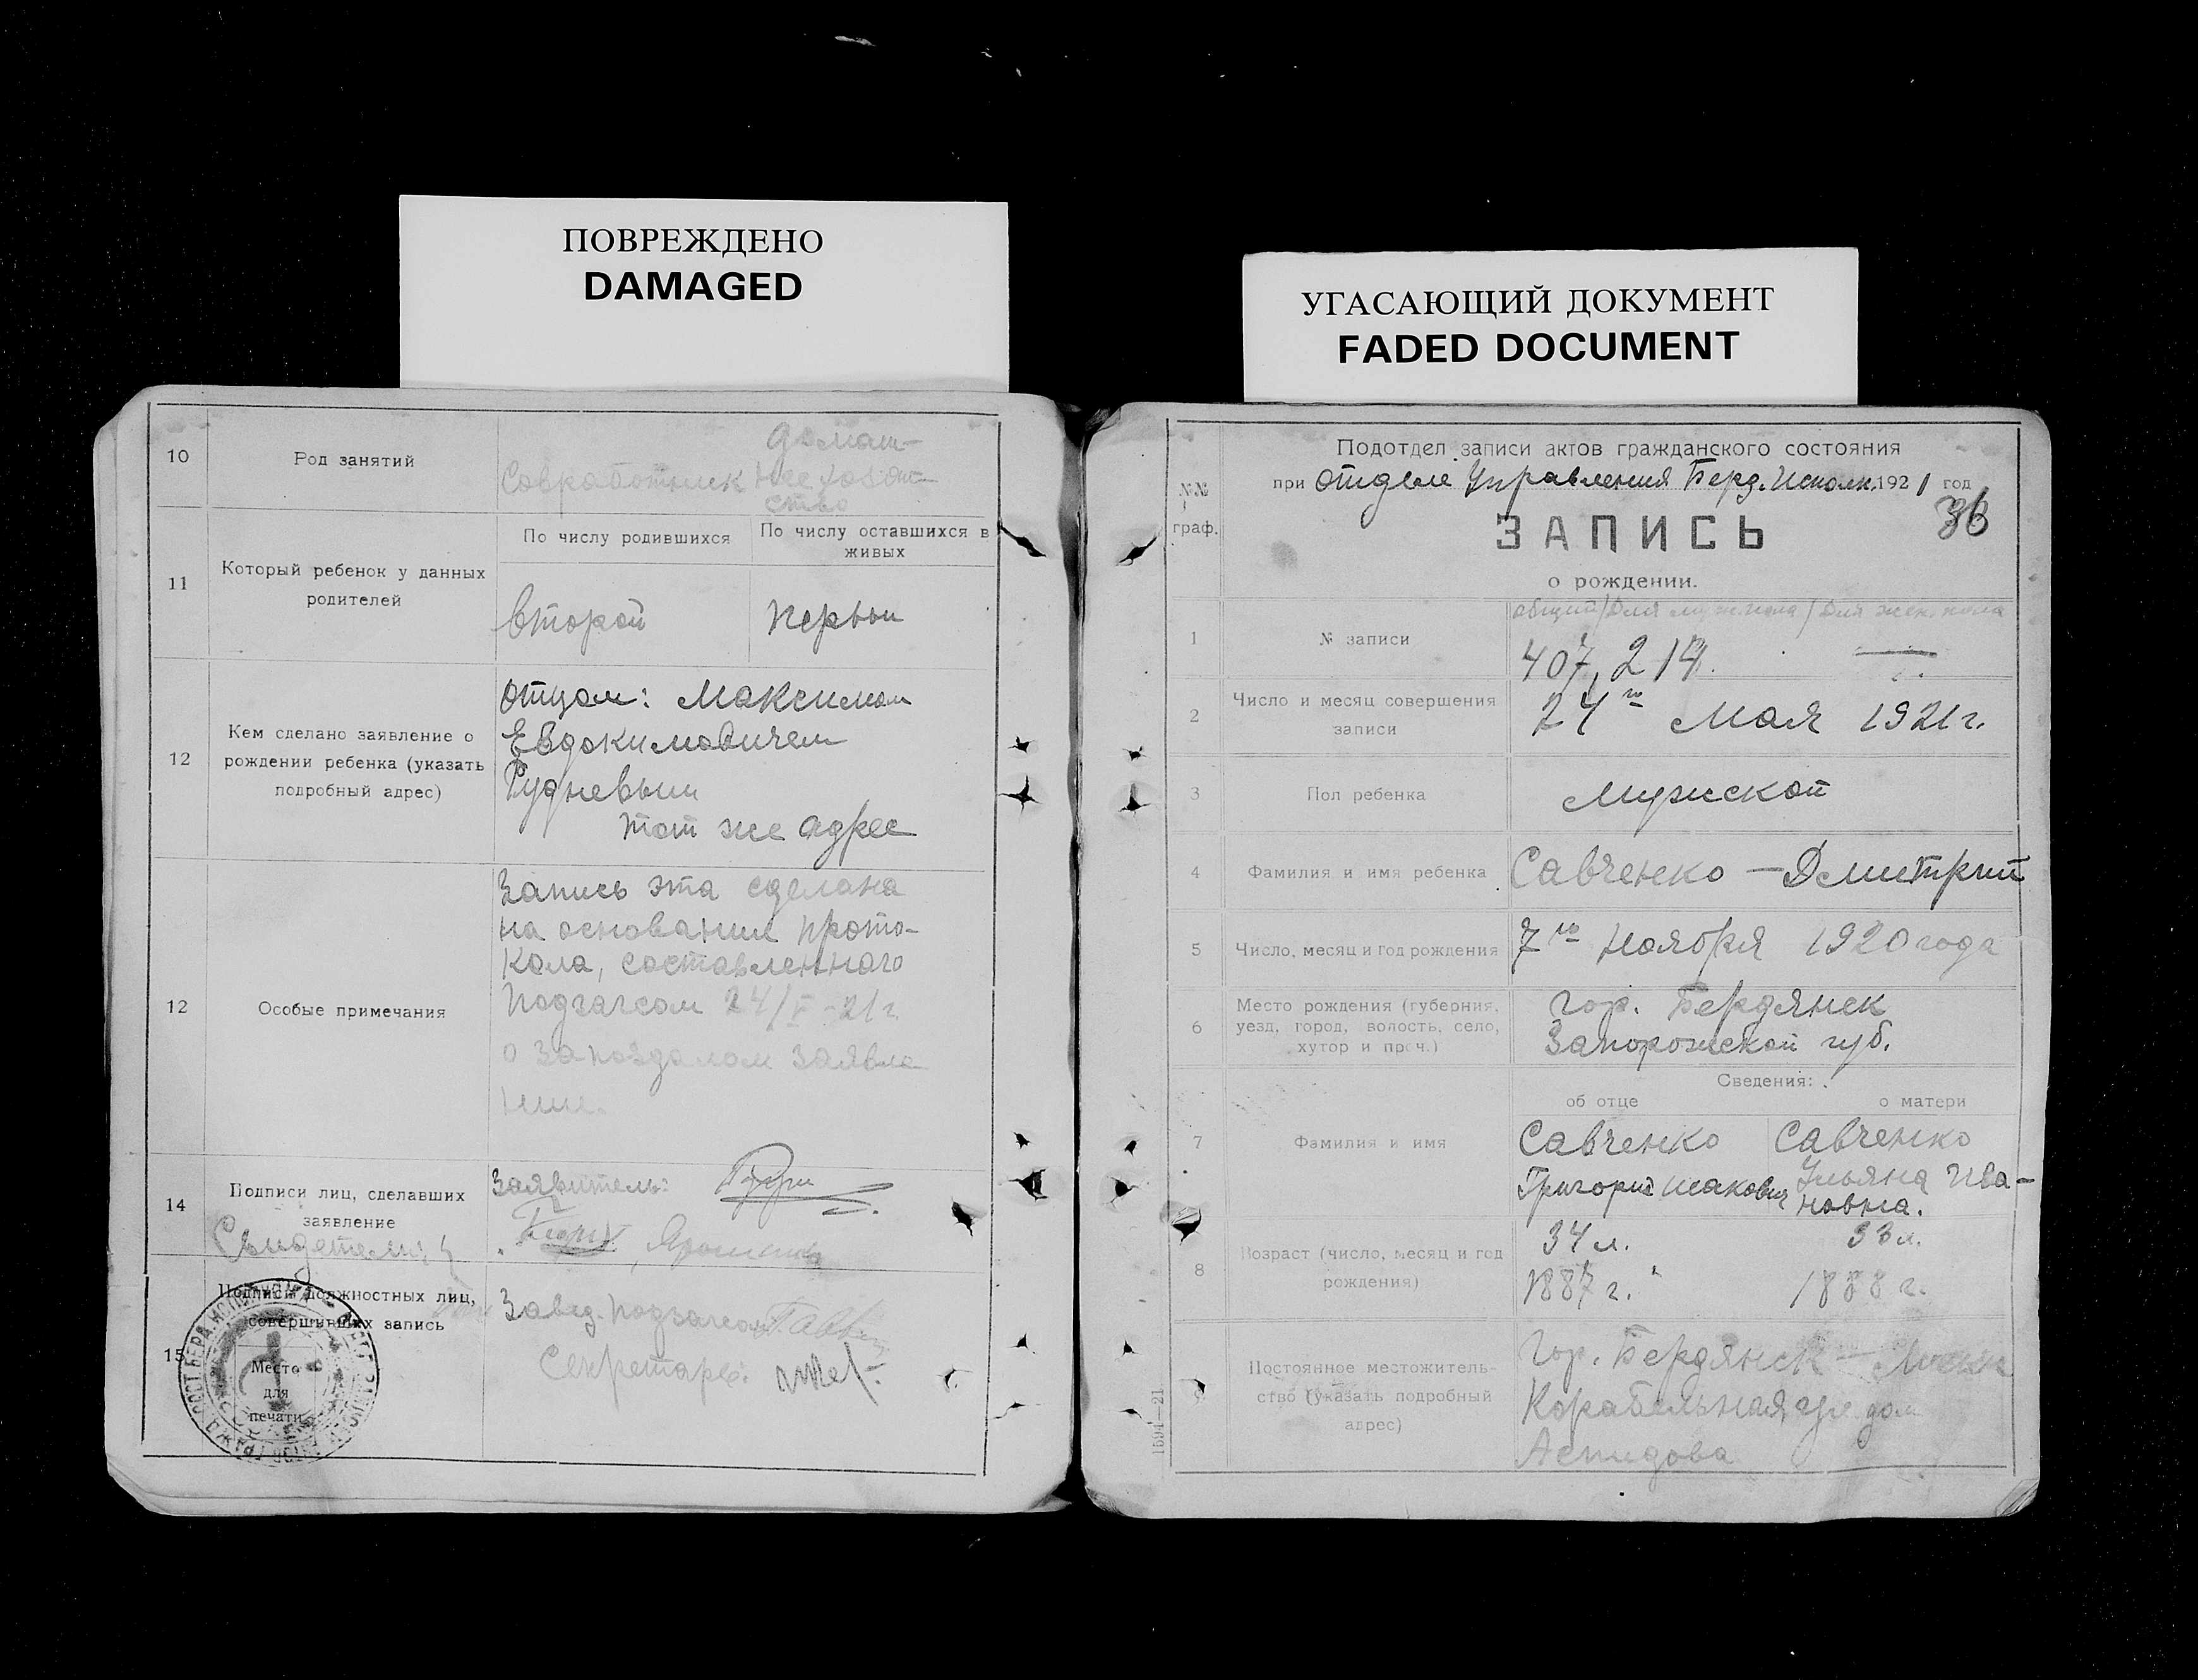 ПОВРЕЖДЕНО
DAMAGED
10
Род занятий
Совработник
домаш-
нее хозяй-
ство
11
Который ребенок у данных
родителей
По числу родившихся
По числу оставшихся в
живых
второй
первый
12
Кем сделано заявление о
рождении ребенка (указать
подробный адрес)
отцом: Максимом
Евдокимовичем
Рудневым
тот же адрес
12
Особые примечания
Запись эта сделана
на основании прото-
кола, составленного
подзагсом 24/V-21 г.
о запоздалом заявле
нии.
14
Подписи лиц, сделавших
заявление
Свидетели:
Заявитель:
15
Подписи должностных лиц,
совершивших запись
Место
для
печати
Завед. подзагсом
Секретарь:
УГАСАЮЩИЙ ДОКУМЕНТ
FADED DOCUMENT
№№
граф.
Подотдел записи актов гражданского состояния
при отделе Управления Берд. Исполк. 1921 год
36
ЗАПИСЬ
о рождении.
общий / для муж. пола / для жен. пола
1
№ записи
407, 214. —
2
Число и месяц совершения
записи
24го Мая 1921 г.
3
Пол ребенка
Мужской
4
Фамилия и имя ребенка
Савченко — Дмитрий
5
Число, месяц и год рождения
7го ноября 1920 года
6
Место рождения (губерния,
уезд, город, волость, село,
хутор и проч.)
гор. Бердянск
Запорожской губ.
Сведения:
об отце
о матери
7
Фамилия и имя
Савченко
Григорий Исакович
Савченко
Ульяна Ива-
новна.
8
Возраст (число, месяц и год
рождения)
34 л.
1887 г.
33 л.
1888 г.
9
Постоянное местожитель-
ство (указать подробный
адрес)
Гор. Бердянск —
Корабельная, дом
Аспидова
1594—21